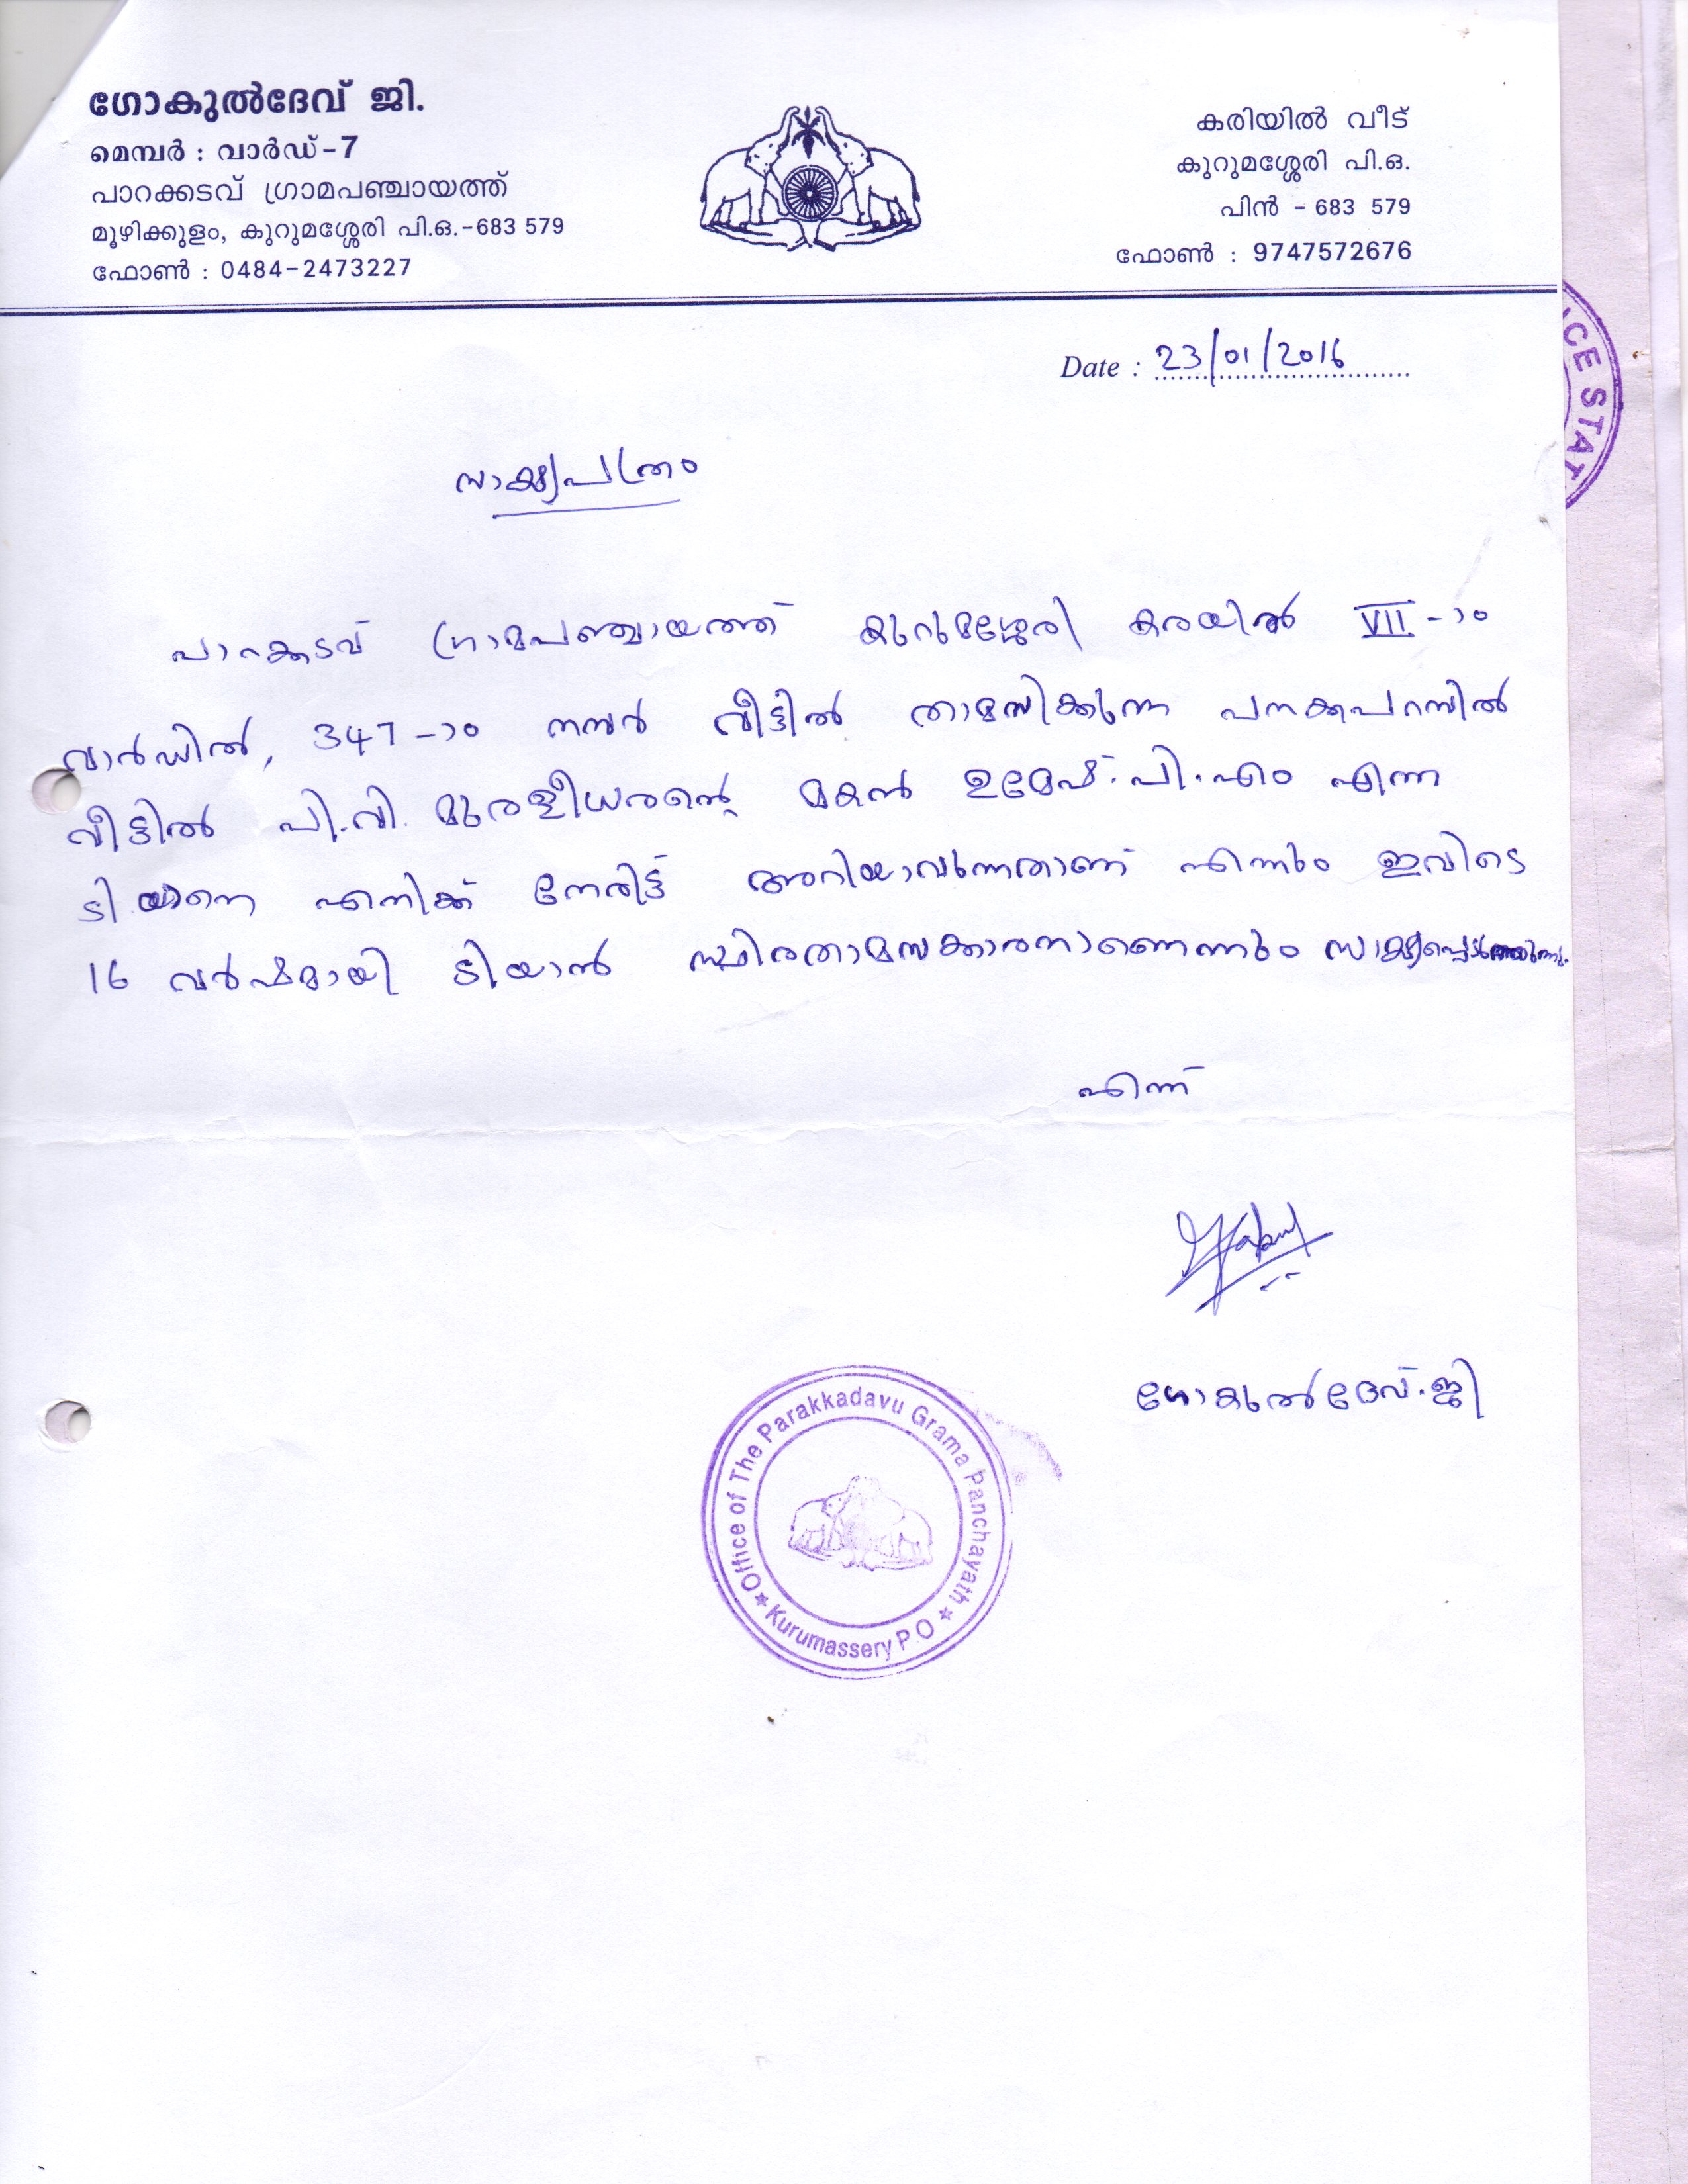 ഗോകുൽദേവ് ജി.
മെമ്പർ : വാർഡ്-7
പാറക്കടവ് ഗ്രാമപഞ്ചായത്ത്
മൂഴിക്കുളം, കുറുമശ്ശേരി പി.ഒ.-683 579
ഫോൺ : 0484-2473227
കരിയിൽ വീട്
കുറുമശ്ശേരി പി.ഒ.
പിൻ - 683 579
ഫോൺ : 9747572676
Date : 23/01/2016
സാക്ഷ്യപത്രം
പാറക്കടവ് ഗ്രാമപഞ്ചായത്ത് കുറുമശ്ശേരി കരയിൽ VII-ാം
വാർഡിൽ, 347-ാം നമ്പർ വീട്ടിൽ താമസിക്കുന്ന പനക്കപറമ്പിൽ
വീട്ടിൽ പി.വി. മുരളീധരന്റെ മകൻ ഉമേഷ്.പി.എം എന്ന
ടിയാനെ എനിക്ക് നേരിട്ട് അറിയാവുന്നതാണ് എന്നും ഇവിടെ
16 വർഷമായി ടിയാൻ സ്ഥിരതാമസക്കാരനാണെന്നും സാക്ഷ്യപ്പെടുത്തുന്നു.
എന്ന്
ഗോകുൽദേവ്.ജി
Office of The Parakkadavu Grama Panchayath
Kurumassery P.O